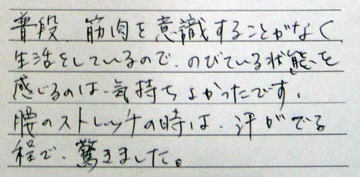 普段、筋肉を意識することがなく
生活をしているので、のびている状態を
感じるのは気持ちよかったです。
腰のストレッチの時は、汗がでる
程で、驚きました。